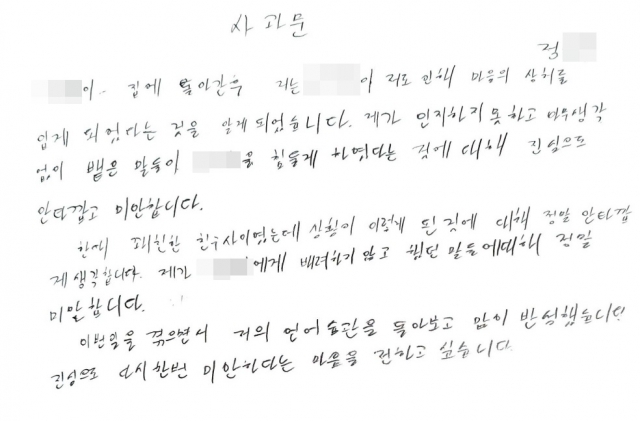 사 과 문
정
이.. 집에 돌아간후 저는 아 저로 인해 마음의 상처를
입게 되었다는 것을 알게되었습니다. 제가 인지하지 못하고 너무생각
없이 뱉은 말들이 을 힘들게 하였다는 것에 대해 진심으로
안타깝고 미안합니다.
한때 친한 친구사이였는데 상황이 이렇게 된것에 대해 정말 안타깝
게 생각합니다. 제가 에게 배려하지 않고 했던 말들에대해 정말
미안합니다.
이번일을 겪으면서 저의 언어습관을 돌아보고 많이 반성했습니다
진심으로 다시한번 미안하다는 마음을 전하고 싶습니다.